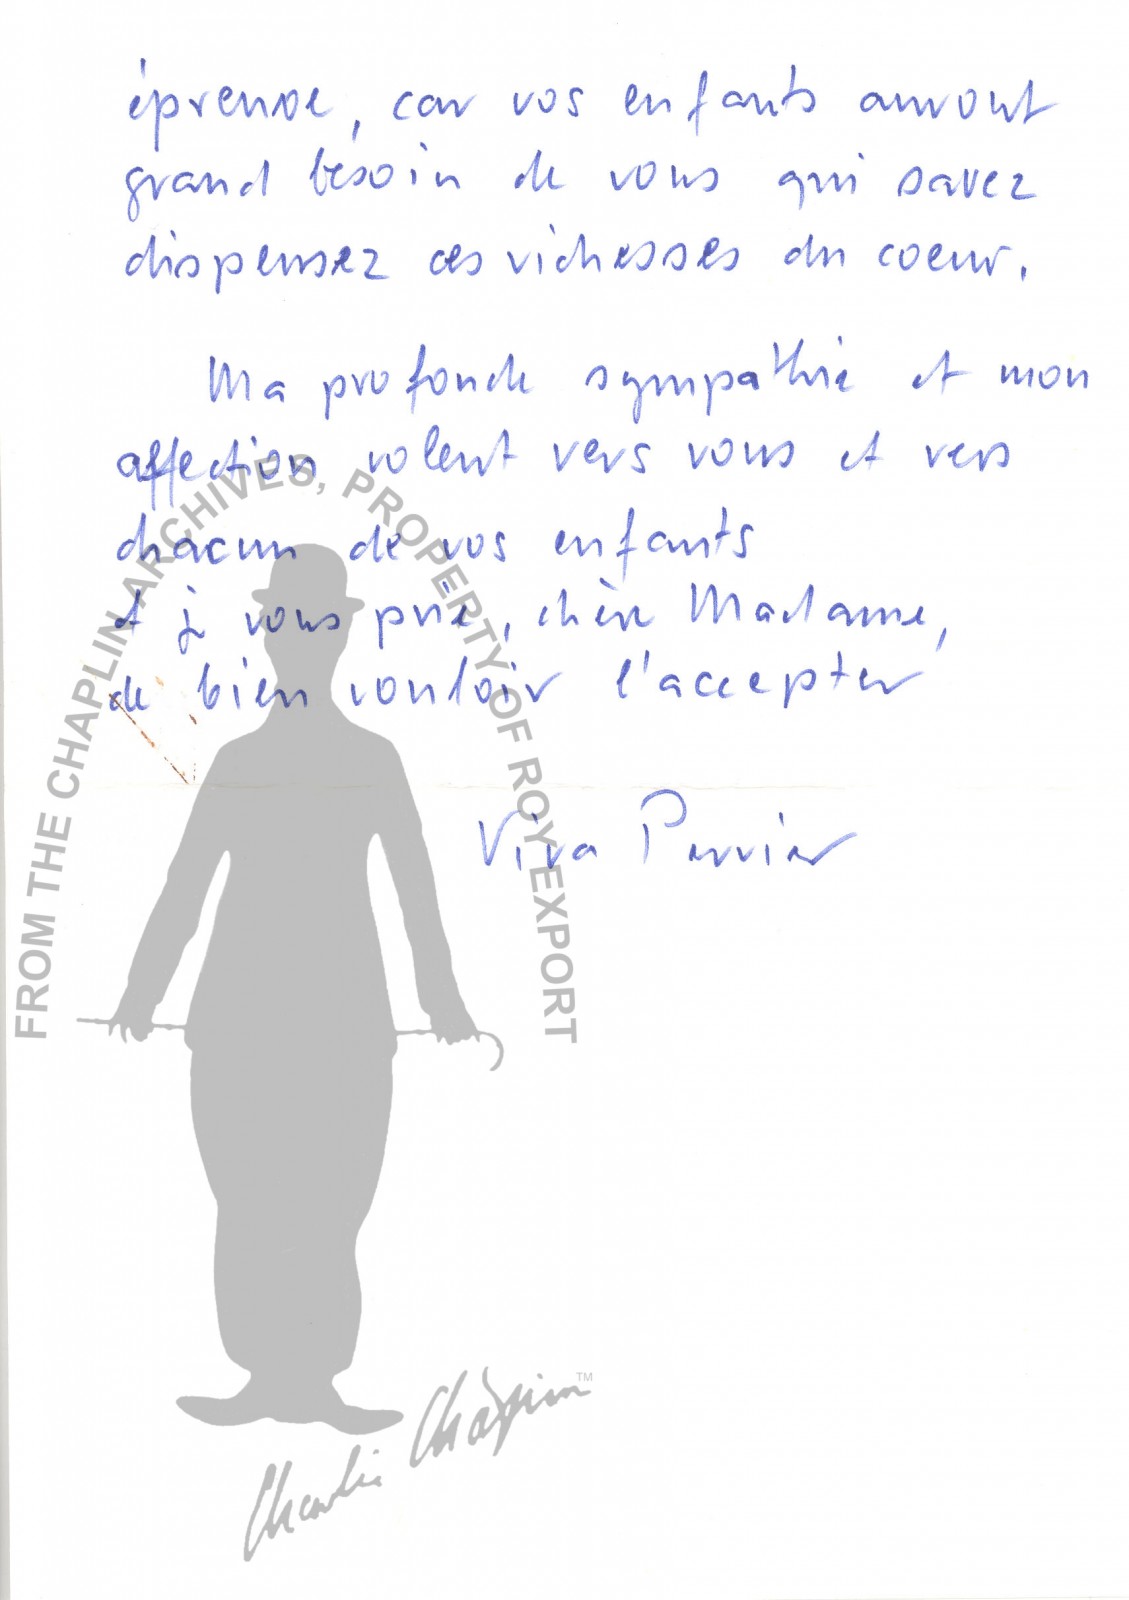 épreuve, car vos enfants auront
grand besoin de vous qui savez
dispensez ces richesses du coeur.
Ma profonde sympathie et mon
affection volent vers vous et vers
chacun de vos enfants
et je vous prie, chère Madame,
de bien vouloir l'accepter
Viva Perrier
FROM THE CHAPLIN ARCHIVES, PROPERTY OF ROY EXPORT
Charlie Chaplin™